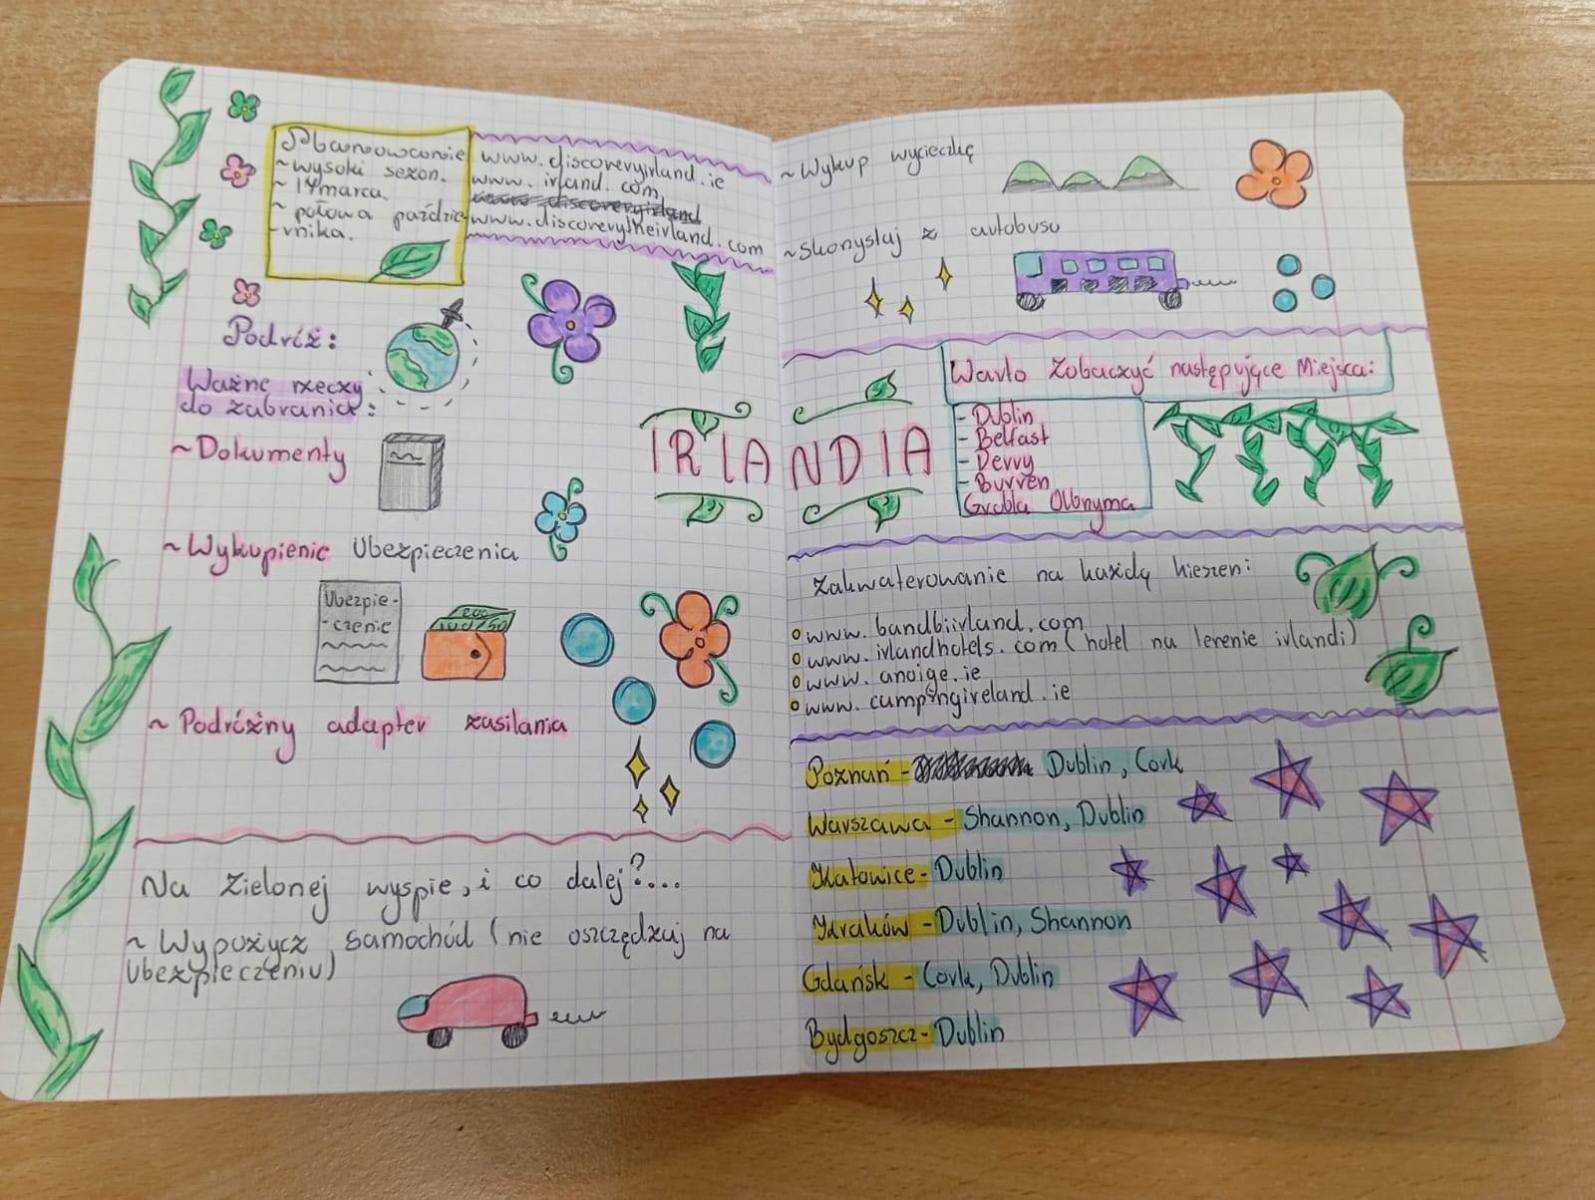 Planowanie
~ wysoki sezon.
~ 17 marca.
~ połowa paździe-
-rnika.
www.discoveryirland.ie
www.irland.com
www.discoveryirland
www.discorverytheirland.com
Podróż:
Ważne rzeczy
do zabrania:
~ Dokumenty
~ Wykupienie Ubezpieczenia
Ubezpie-
-czenie
200
100/50
~ Podróżny adapter zasilania
Na Zielonej wyspie, i co dalej?...
~ Wypożycz samochód (nie oszczędzaj na
ubezpieczeniu)
IRLANDIA
~ Wykup wycieczkę
~ Skorzystaj z autobusu
Warto Zobaczyć następujące Miejsca:
- Dublin
- Belfast
- Derry
- Burren
Grobla Olbryma
Zakwaterowanie na każdą kieszeń:
www.bandbiirland.com
www.irlandhotels.com (hotel na terenie irlandi)
www.anoige.ie
www.campingireland.ie
Poznań - Dublin, Cork
Warszawa - Shannon, Dublin
Katowice - Dublin
Kraków - Dublin, Shannon
Gdańsk - Cork, Dublin
Bydgoszcz - Dublin